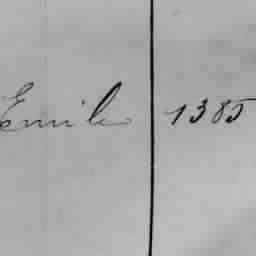 Emile 1385